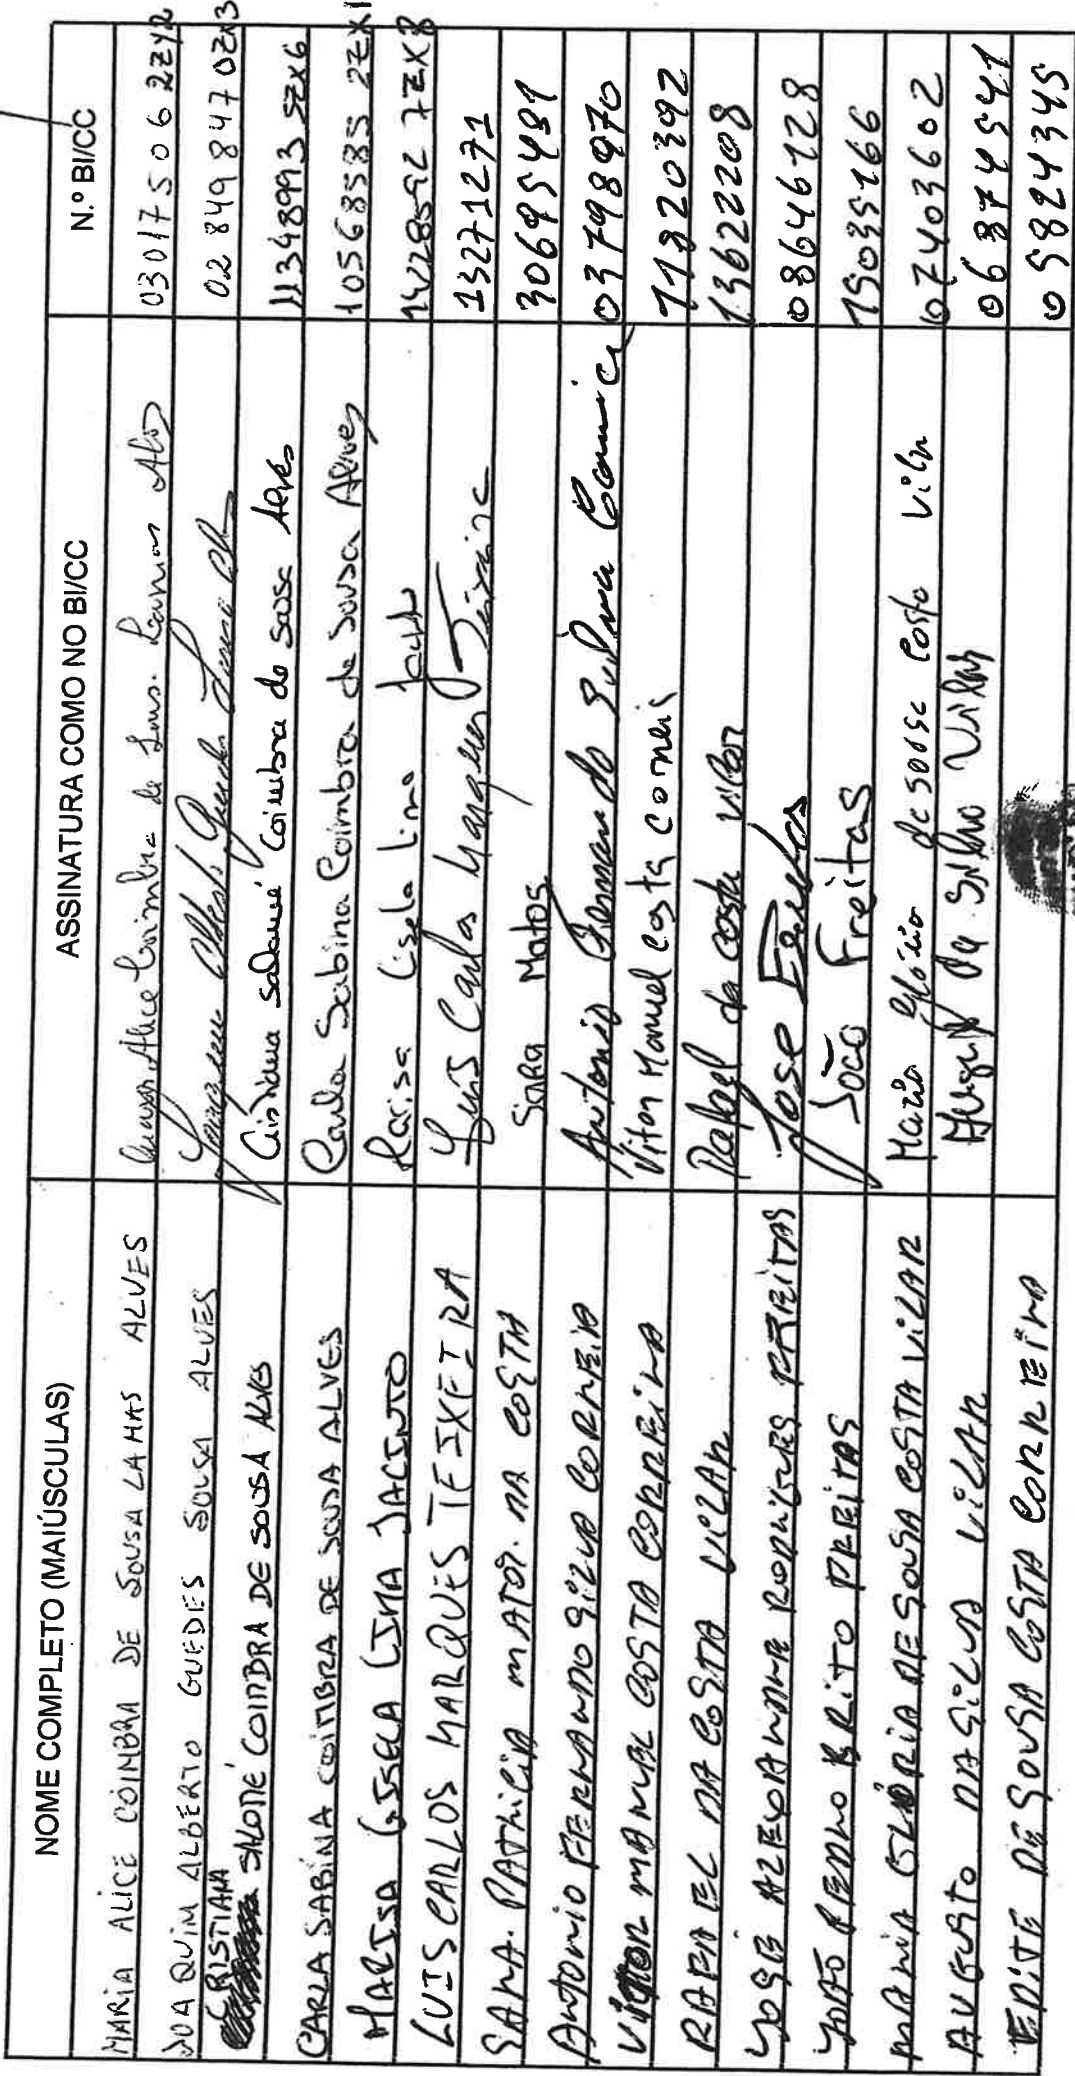 NOME COMPLETO (MAIÚSCULAS) ASSINATURA COMO NO BI/CC N.º BI/CC
MARIA ALICE COIMBRA DE SOUSA LAMAS ALVES Maria Alice Coimbra de Sous. Lamas Alves 03017506 2ZY2
JOAQUIM ALBERTO GUEDES SOUSA ALVES 02849847 0ZX3
CRISTIANA SALOMÉ COIMBRA DE SOUSA ALVES Cristiana Salomé Coimbra de Sousa Alves 11348993 5ZX6
CARLA SABINA COIMBRA DE SOUSA ALVES Carla Sabina Coimbra de Sousa Alves 10568585 2ZX1
MARISA GISELA LIMA JACINTO Marisa Gisela Lima 7ZX8
LUIS CARLOS MARQUES TEIXEIRA Luis Carlos Marques Teixeira 13271271
SARA PATRICIA MATOS DA COSTA Sara Matos 30695481
ANTONIO FERNANDO SILVA CORREIA Antonio Fernando Silva Correia 03798970
VITOR MANUEL COSTA CORREIRA Vitor Manuel Costa Correia 11820392
RAFAEL DA COSTA VILAR Rafael da costa vilar 13622208
JOSE ALEXANDRE RODRIGUES FREITAS Jose 08646128
JOÃO PEDRO BRITO FREITAS João Freitas 15035166
MARIA GLÓRIA DE SOUSA COSTA VILAR Maria Glória de Sousa Costa Vilar 07403602
AUGUSTO DA SILVA VILAR Augusto da Silva Vilar 06874541
EDITE DE SOUSA COSTA CORREIRA 05824345